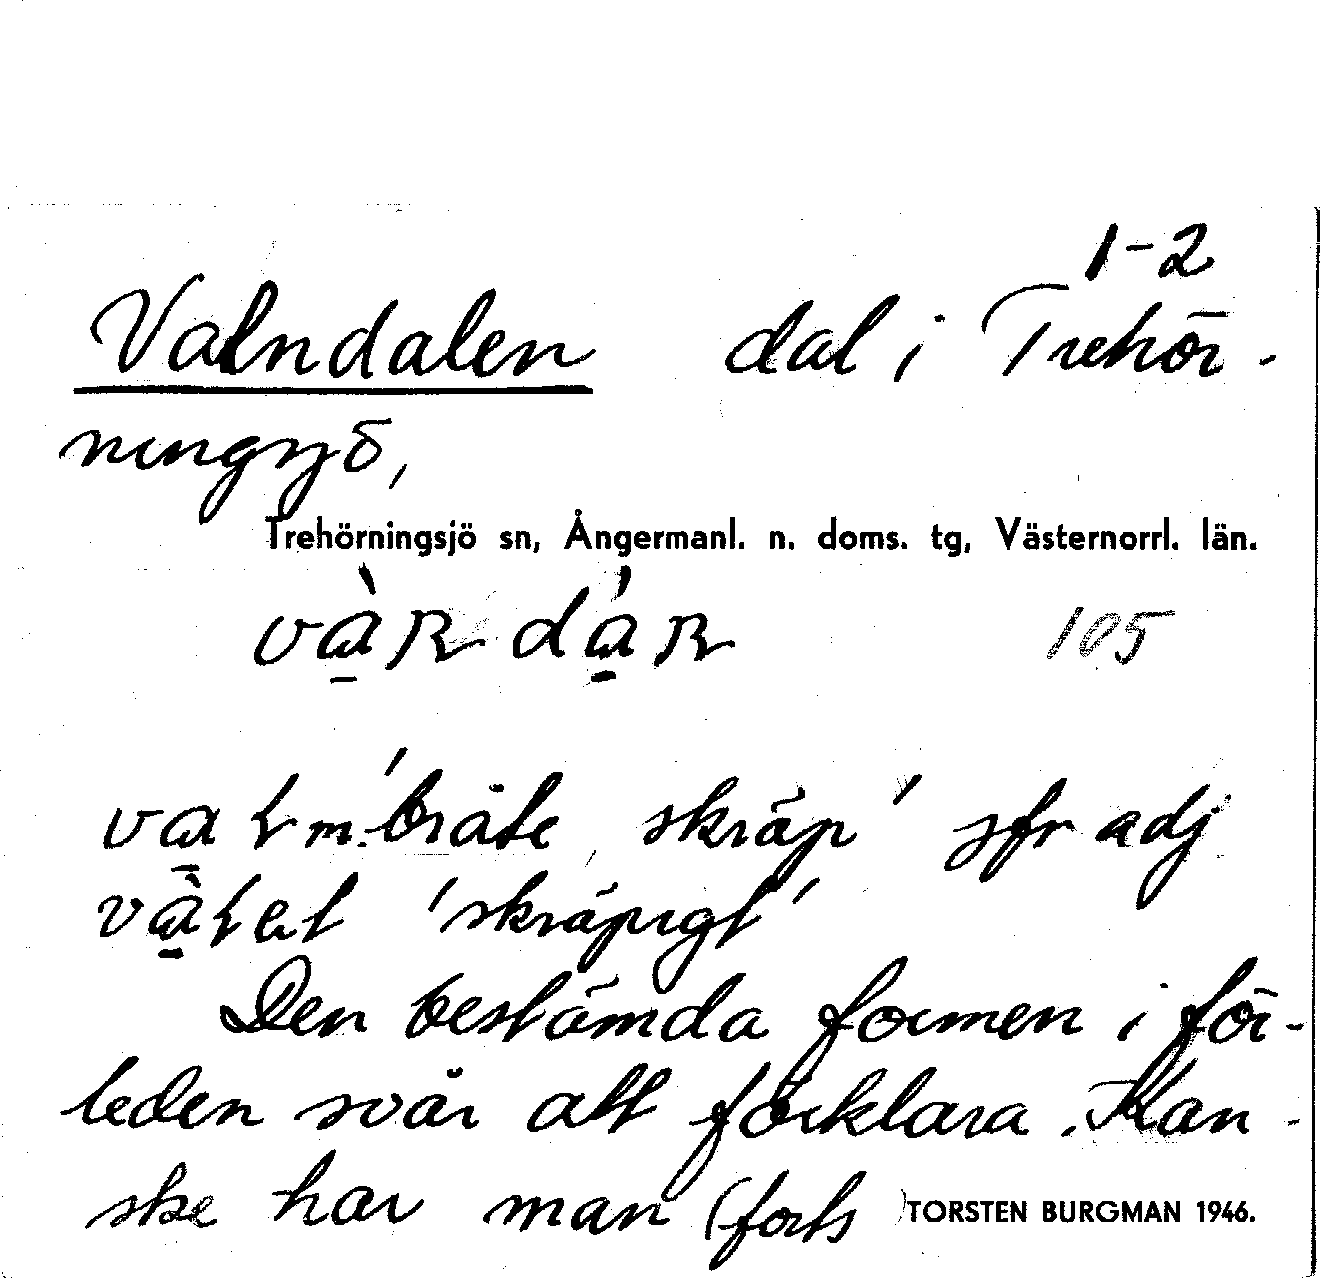 1-2
Valndalen dal i Trehör-
ningsjö,
Trehörningsjö sn, Ångermanl. n. doms. tg, Västernorrl. län.
105
m. 'bråte, skräp' jfr adj
'skräpigt'
Den bestämda formen i för-
leden svår att förklara. Kan-
ske har man (forts)
TORSTEN BURGMAN 1946.